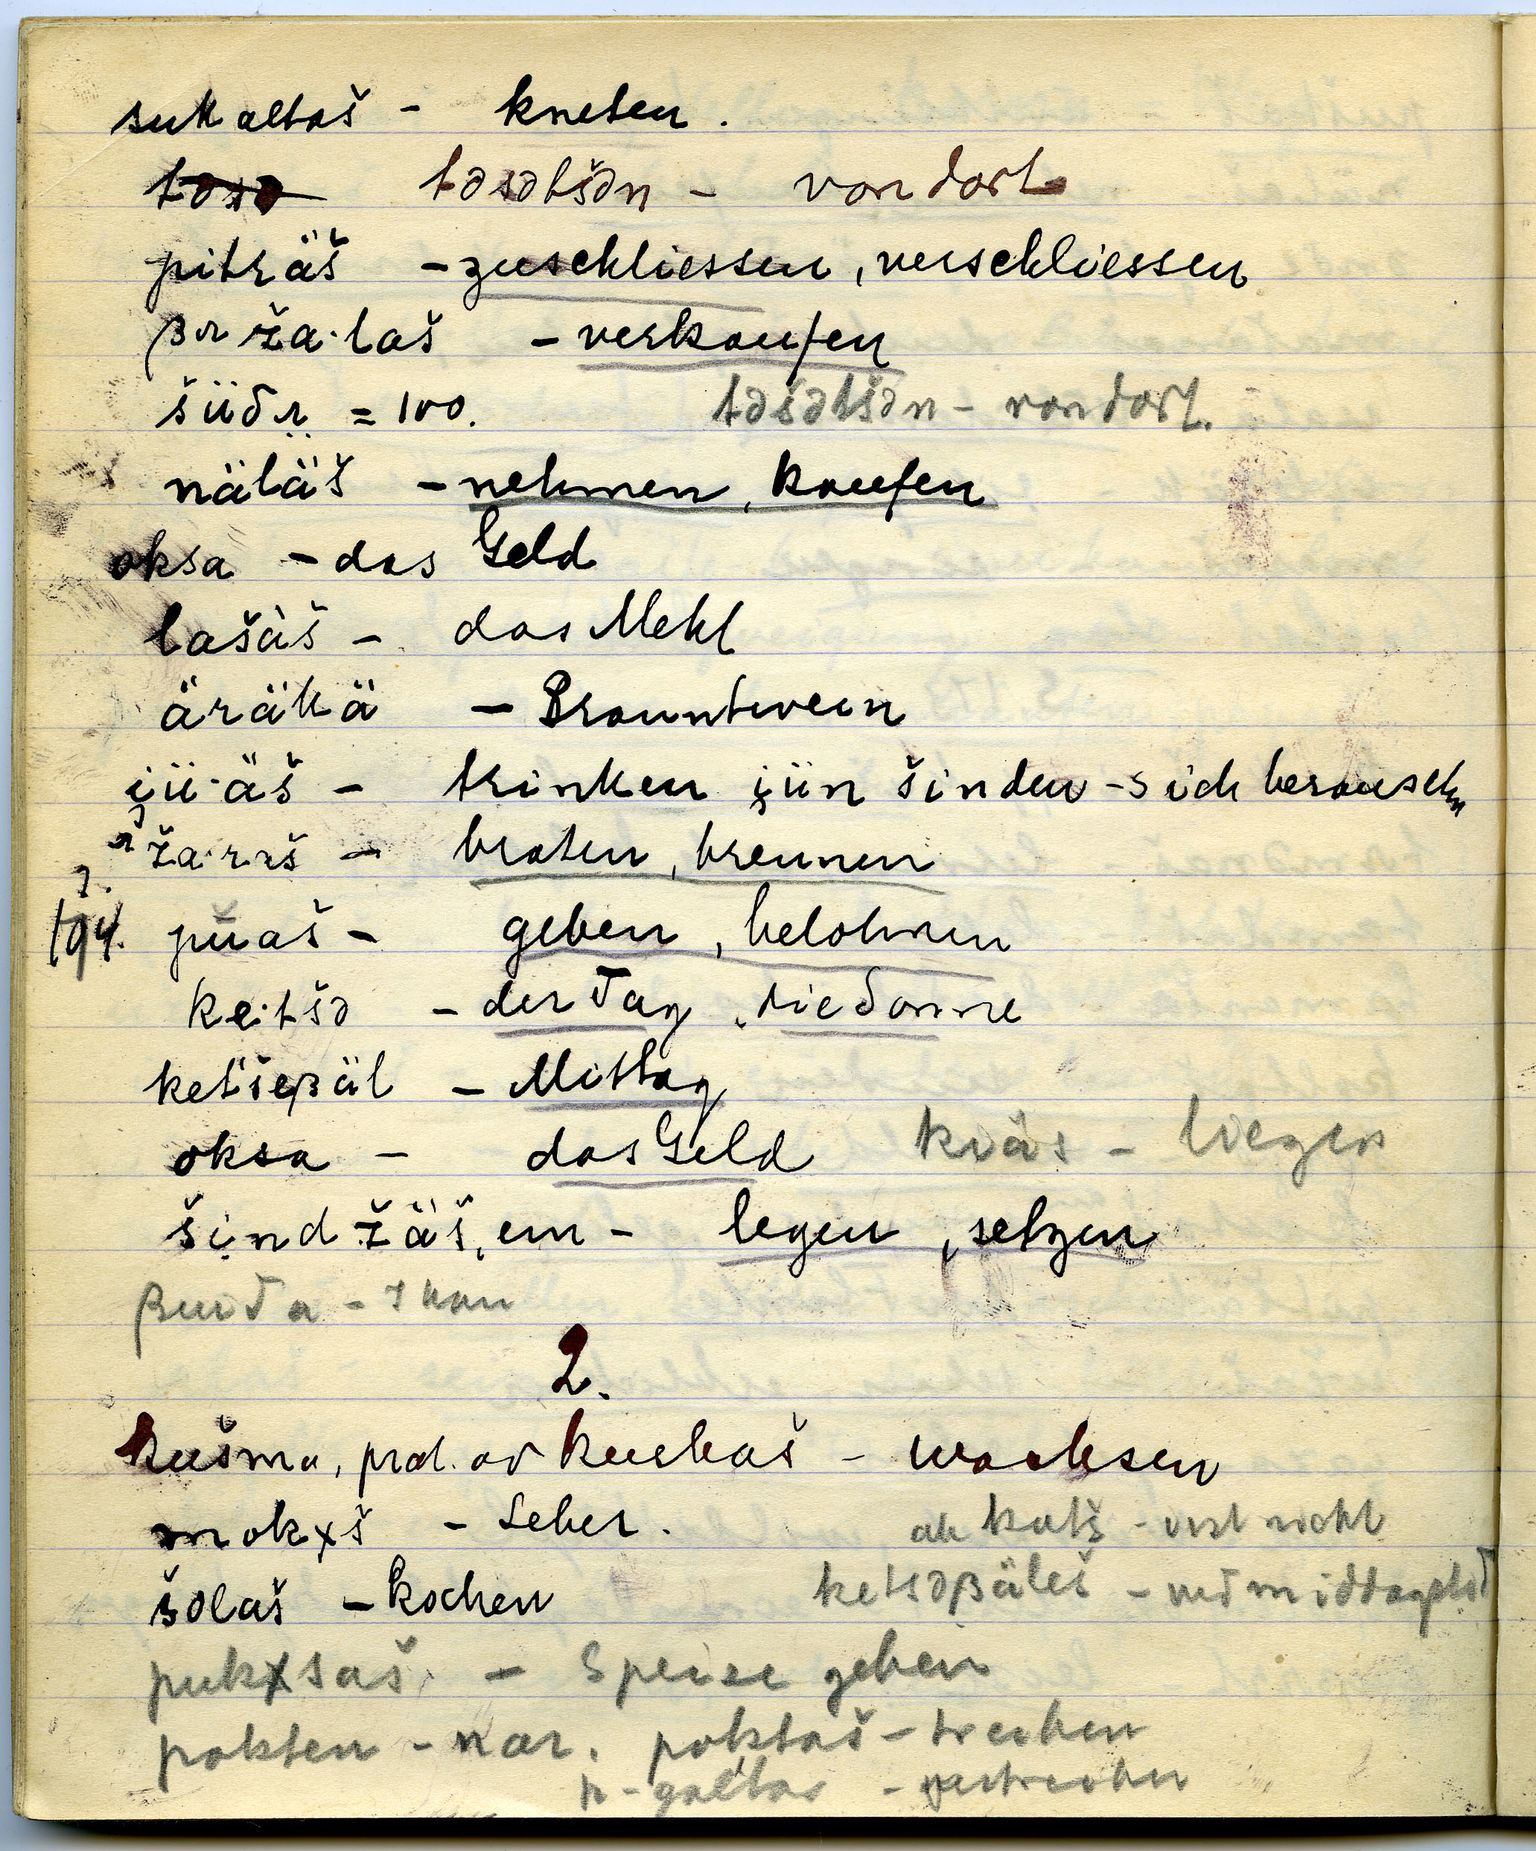 sukaltaš - kneten.
təsə təsətšən - von dort
piträš - zuschliessen, verschliessen
βə̑ža·laš - verkaufen
šüδə̑ = 100. təšətšən - von dort.
näläš - nehmen, kaufen
oksa - das Geld
lašàš - das Mehl
äräkä - Branntwein
i̯ü·äš - trinken i̯ün šinden - sich berauschen
ža·rə̑š - braten, brennen
194. pŭaš - geben, belohnen
ke·tšə - der Tag, die Sonne
ketšeβäl - Mittag
oksa - das Geld kiäs - liegen
šindžäš, em - legen, setzen
βuδa -
2.
kušma, prät. av kuškaš - wachsen
mokš - Leber.
šolaš - kochen
ketsəβäleš - vid middagstid
pukšaš - Speise geben
pokten - nar. poktaš - treiben